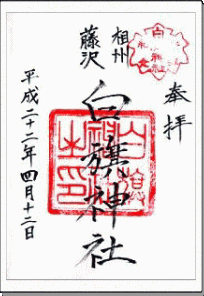 奉拝
相州
藤沢
白旗神社
平成二十二年四月十二日